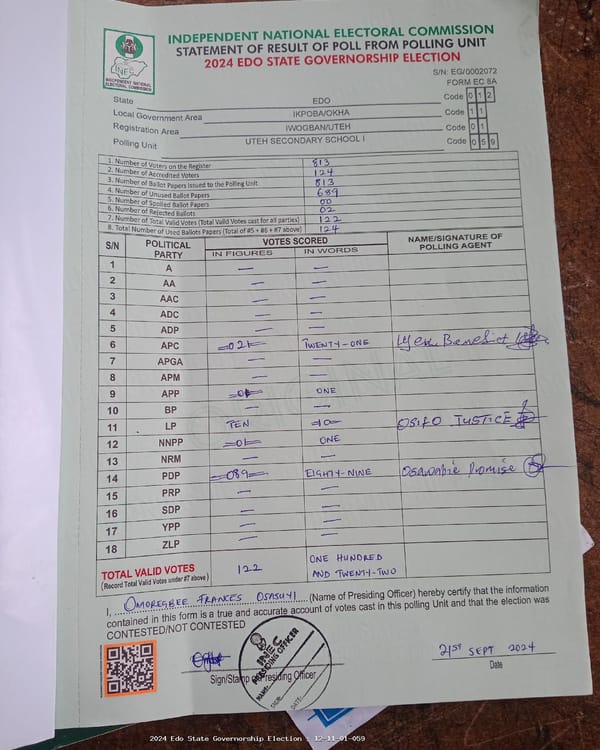 INDEPENDENT NATIONAL ELECTORAL COMMISSION
STATEMENT OF RESULT OF POLL FROM POLLING UNIT
2024 EDO STATE GOVERNORSHIP ELECTION
INEC
INDEPENDENT NATIONAL ELECTORAL COMMISSION
S/N: EG/0002072
FORM EC 8A
State EDO Code 0 1 2
Local Government Area IKPOBA/OKHA Code 1 1
Registration Area IWOGBAN/UTEH Code 0 1
Polling Unit UTEH SECONDARY SCHOOL I Code 0 5 9
1. Number of Voters on the Register 813
2. Number of Accredited Voters 124
3. Number of Ballot Papers Issued to the Polling Unit 813
4. Number of Unused Ballot Papers 689
5. Number of Spoiled Ballot Papers 00
6. Number of Rejected Ballots 02
7. Number of Total Valid Votes (Total Valid Votes cast for all parties) 122
8. Total Number of Used Ballots Papers (Total of #5 + #6 + #7 above) 124
S/N POLITICAL PARTY VOTES SCORED NAME/SIGNATURE OF POLLING AGENT
IN FIGURES IN WORDS
1 A — —
2 AA — —
3 AAC — —
4 ADC — —
5 ADP — —
6 APC 021 TWENTY-ONE Benedict
7 APGA — —
8 APM — —
9 APP 01 ONE
10 BP — —
11 LP TEN 10 OSIFO JUSTICE
12 NNPP 01 ONE
13 NRM — —
14 PDP 089 EIGHTY-NINE Promise
15 PRP — —
16 SDP — —
17 YPP — —
18 ZLP — —
TOTAL VALID VOTES 122 ONE HUNDRED AND TWENTY-TWO
(Record Total Valid Votes under #7 above)
I, OMOREGBEE FRANCES OSASUYI (Name of Presiding Officer) hereby certify that the information
contained in this form is a true and accurate account of votes cast in this polling Unit and that the election was
CONTESTED/NOT CONTESTED
INEC
PRESIDING OFFICER
NAME:
SIGN:
DATE:
21ST SEPT 2024
Sign/Stamp of Presiding Officer Date
2024 Edo State Governorship Election - 12-11-01-059